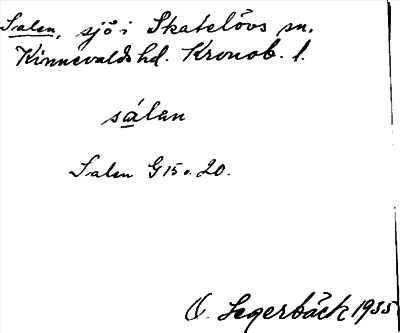 Salen, sjö i Skatelövs sn.
Kinnevalds hd. Kronob. l.
sálen
Salen G15 o. 20.
O. Segerbäck 1935